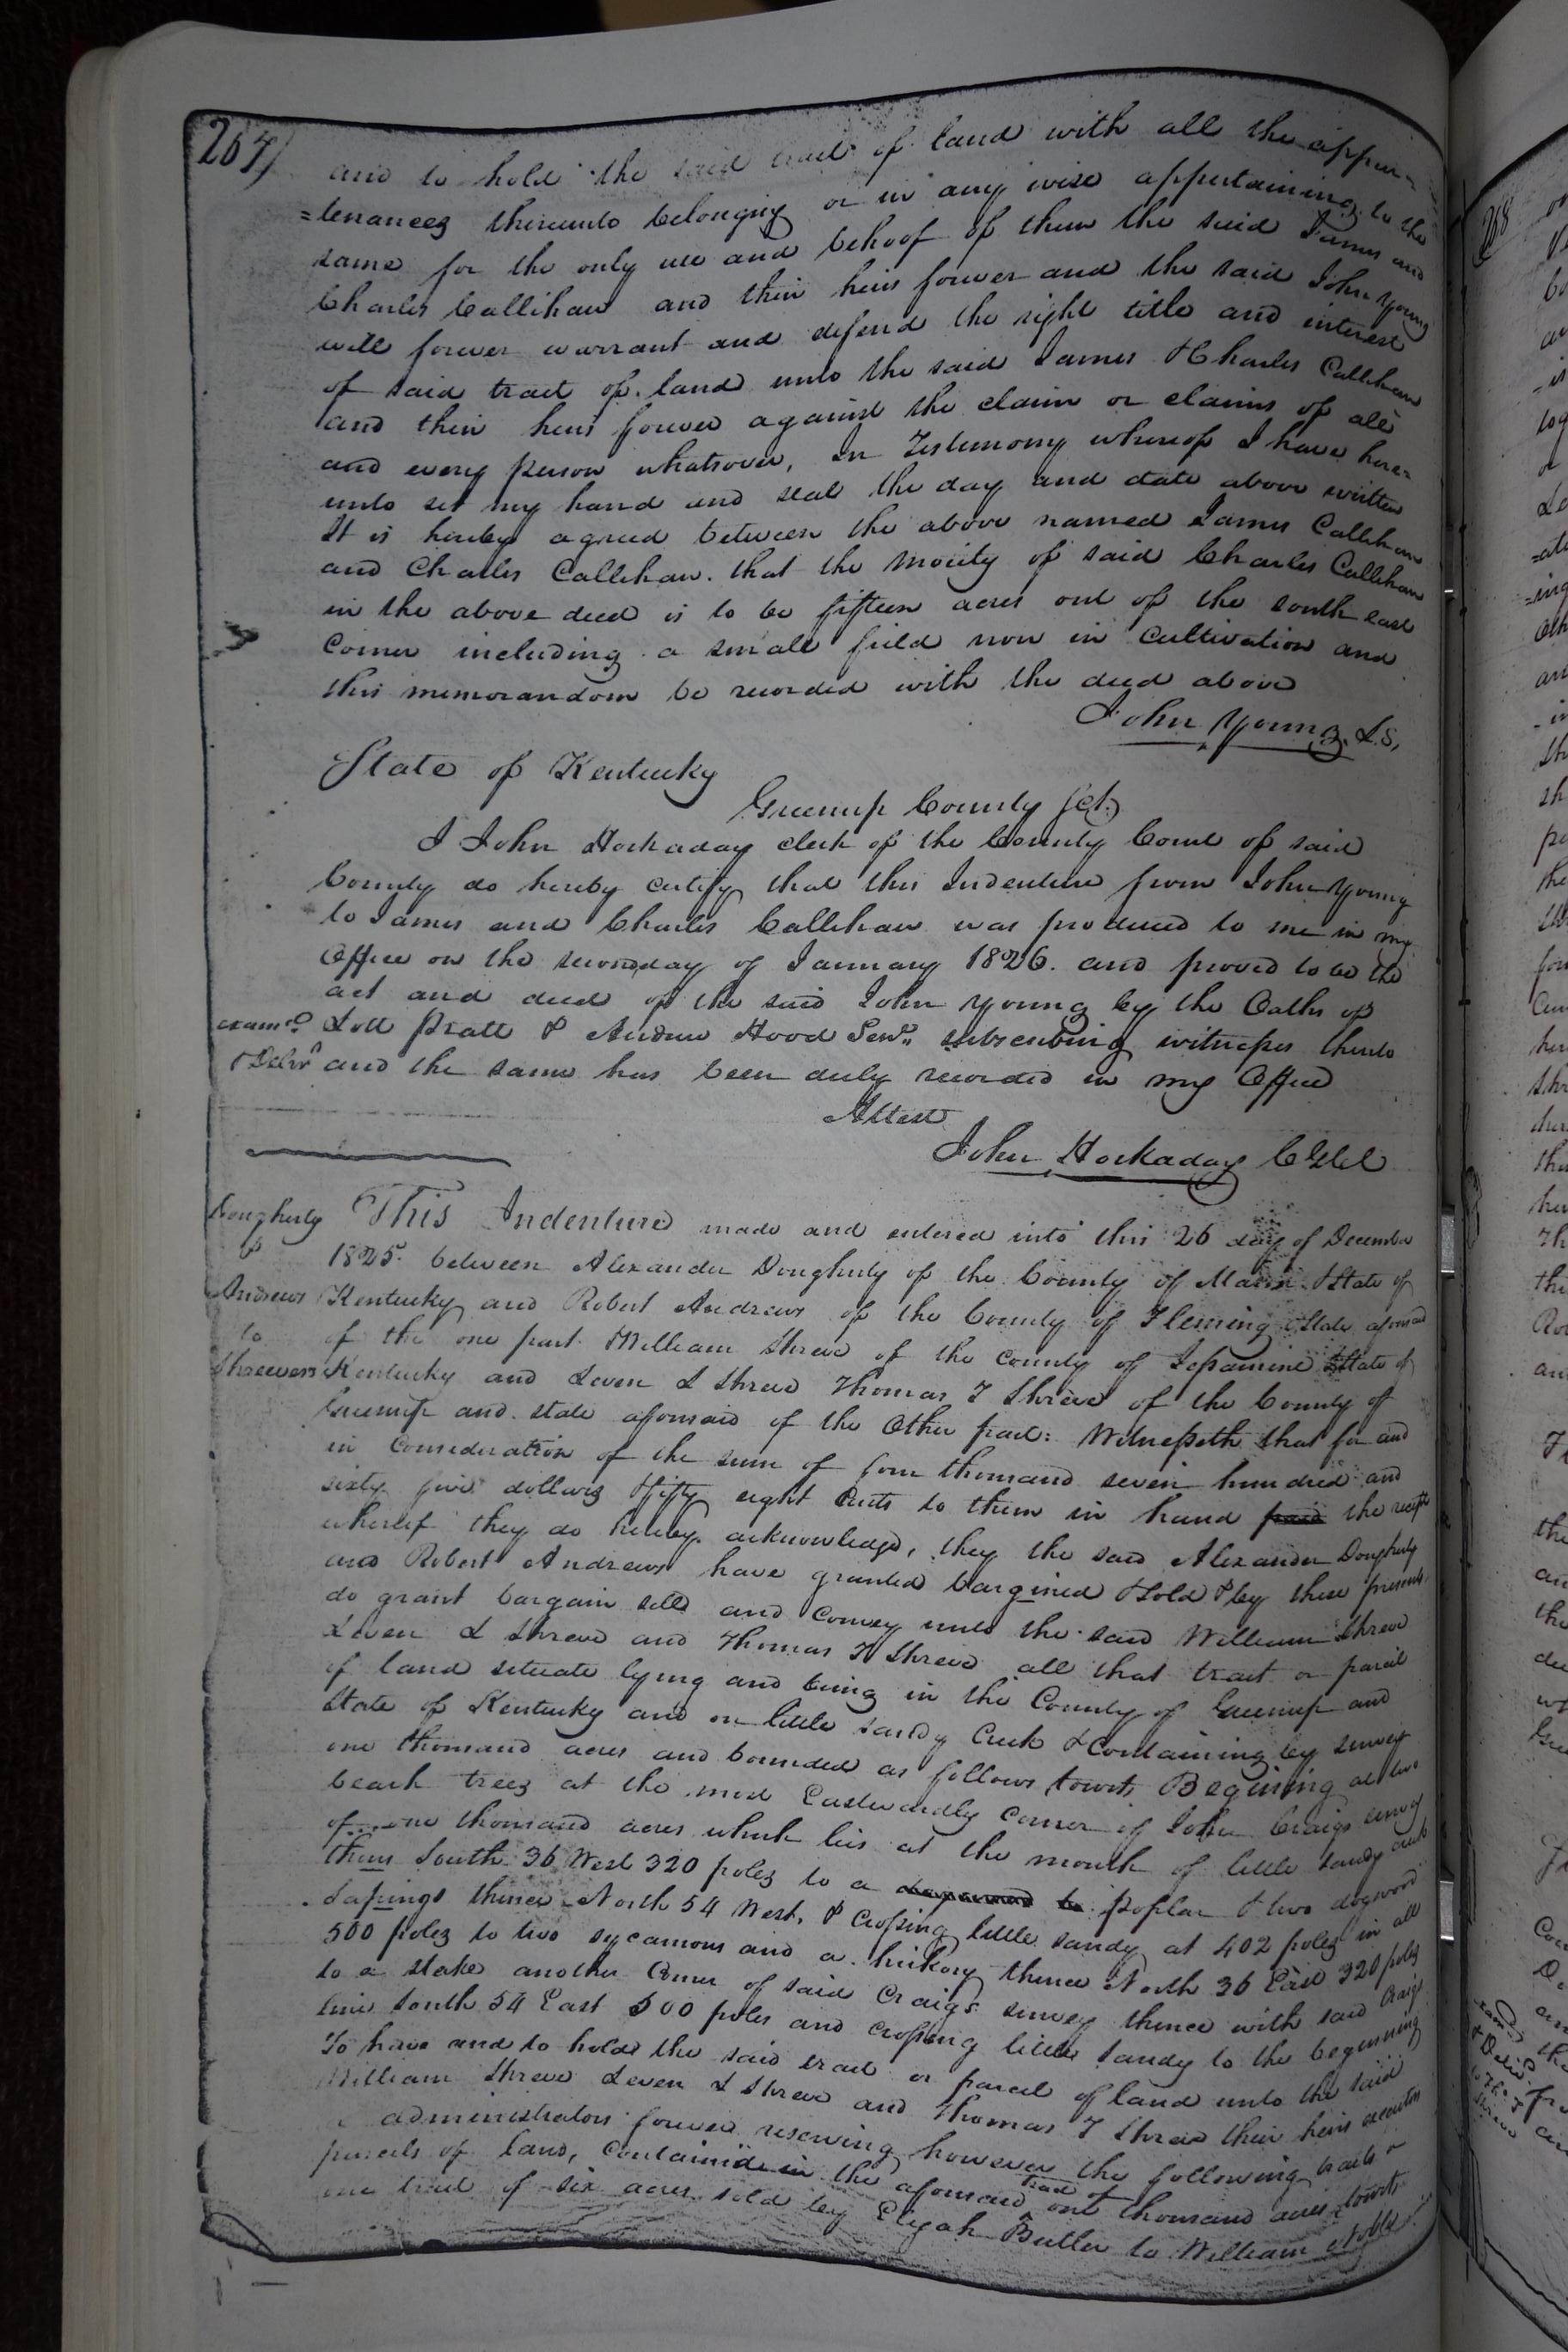 267
and to hold the said tract of land with all the appur-
=tenances thereunto belonging or in any wise appertaining to the
same for the only use and behoof of them the said James and
Charles Callihan and their heirs forever and the said John Young
will forever warrant and defend the right title and interest
of said tract of land unto the said James & Charles Callihan
and their heirs forever against the claim or claims of all
and every person whatsover, In Testimony whereof I have here=
unto set my hand and seal the day and date above written
It is hereby agreed between the above named James Callihan
and Charles Callihan. that the moiety of said Charles Callihan
in the above deed is to be fifteen acres out of the south east
corner including a small field now in cultivation and
this memorandom be recorded with the deed above
John Young. L.S,
State of Kentucky
Greenup County Sct.
I John Hockaday clerk of the County Court of said
County do hereby certify that this Indenture from John Young
to James and Charles Callihan was produced to me in my
Office on the second day of January 1826. and proved to be the
act and deed of the said John Young by the Oaths of
exam.d Lott Pratt & Andrew Hood Senr. subscribing witnesses thereto
& Delivd and the same has been duly recorded in my Office
Attest
John Hockaday
Dougherty This Indenture made and entered into this 26 day of December
& 1825. between Alexander Dougherty of the County of Mason & State of
Andrews Kentucky and Robert Andrews of the County of Fleming & State aforesaid
to of the one part William Shreve of the county of Jessamine & State of
Shreeves Kentucky and Leven L Shreve Thomas T Shreve of the County of
Greenup and state aforesaid of the Other part: Witnesseth that for and
in Consideration of the sum of four thousand seven hundred and
sixty five dollars & fifty eight Cents to them in hand paid the receipt
whereof they do hereby acknowledge, they the said Alexander Dougherty
and Robert Andrews have granted bargined & sold & by these presents
do grant bargain sell and convey unto the said William Shreve
Leven L Shreve and Thomas T Shreve all that tract or parcel
of land situate lying and being in the County of Greenup and
State of Kentucky and on little sandy Creek & Containing by survey
one thousand acres and bounded as follows towit, Begining at two
beach trees at the most Eastwardly corner of John Craigs survey
of one thousand acres which lies at the mouth of little sandy creek
thens South 36 West 320 poles to a poplar & two dogwood
Sapings thence North 54 West, & crossing little sandy at 402 poles in all
500 poles to two sycamous and a hickory thence North 36 East 320 poles
to a stake another Corner of said Craigs survey thence with said Craigs
line south 54 East 500 poles and crossing little sandy to the beginning
To have and to hold the said tract or parcel of land unto the said
William Shreve Leven L Shreve and Thomas T Shreve their heirs executors
administrators forever reserving however the following tracts or
parcels of land, contained in the aforesaid tract of one thousand acres towit,
one tract of six acres sold by Elijah Butler to William Nobles
268